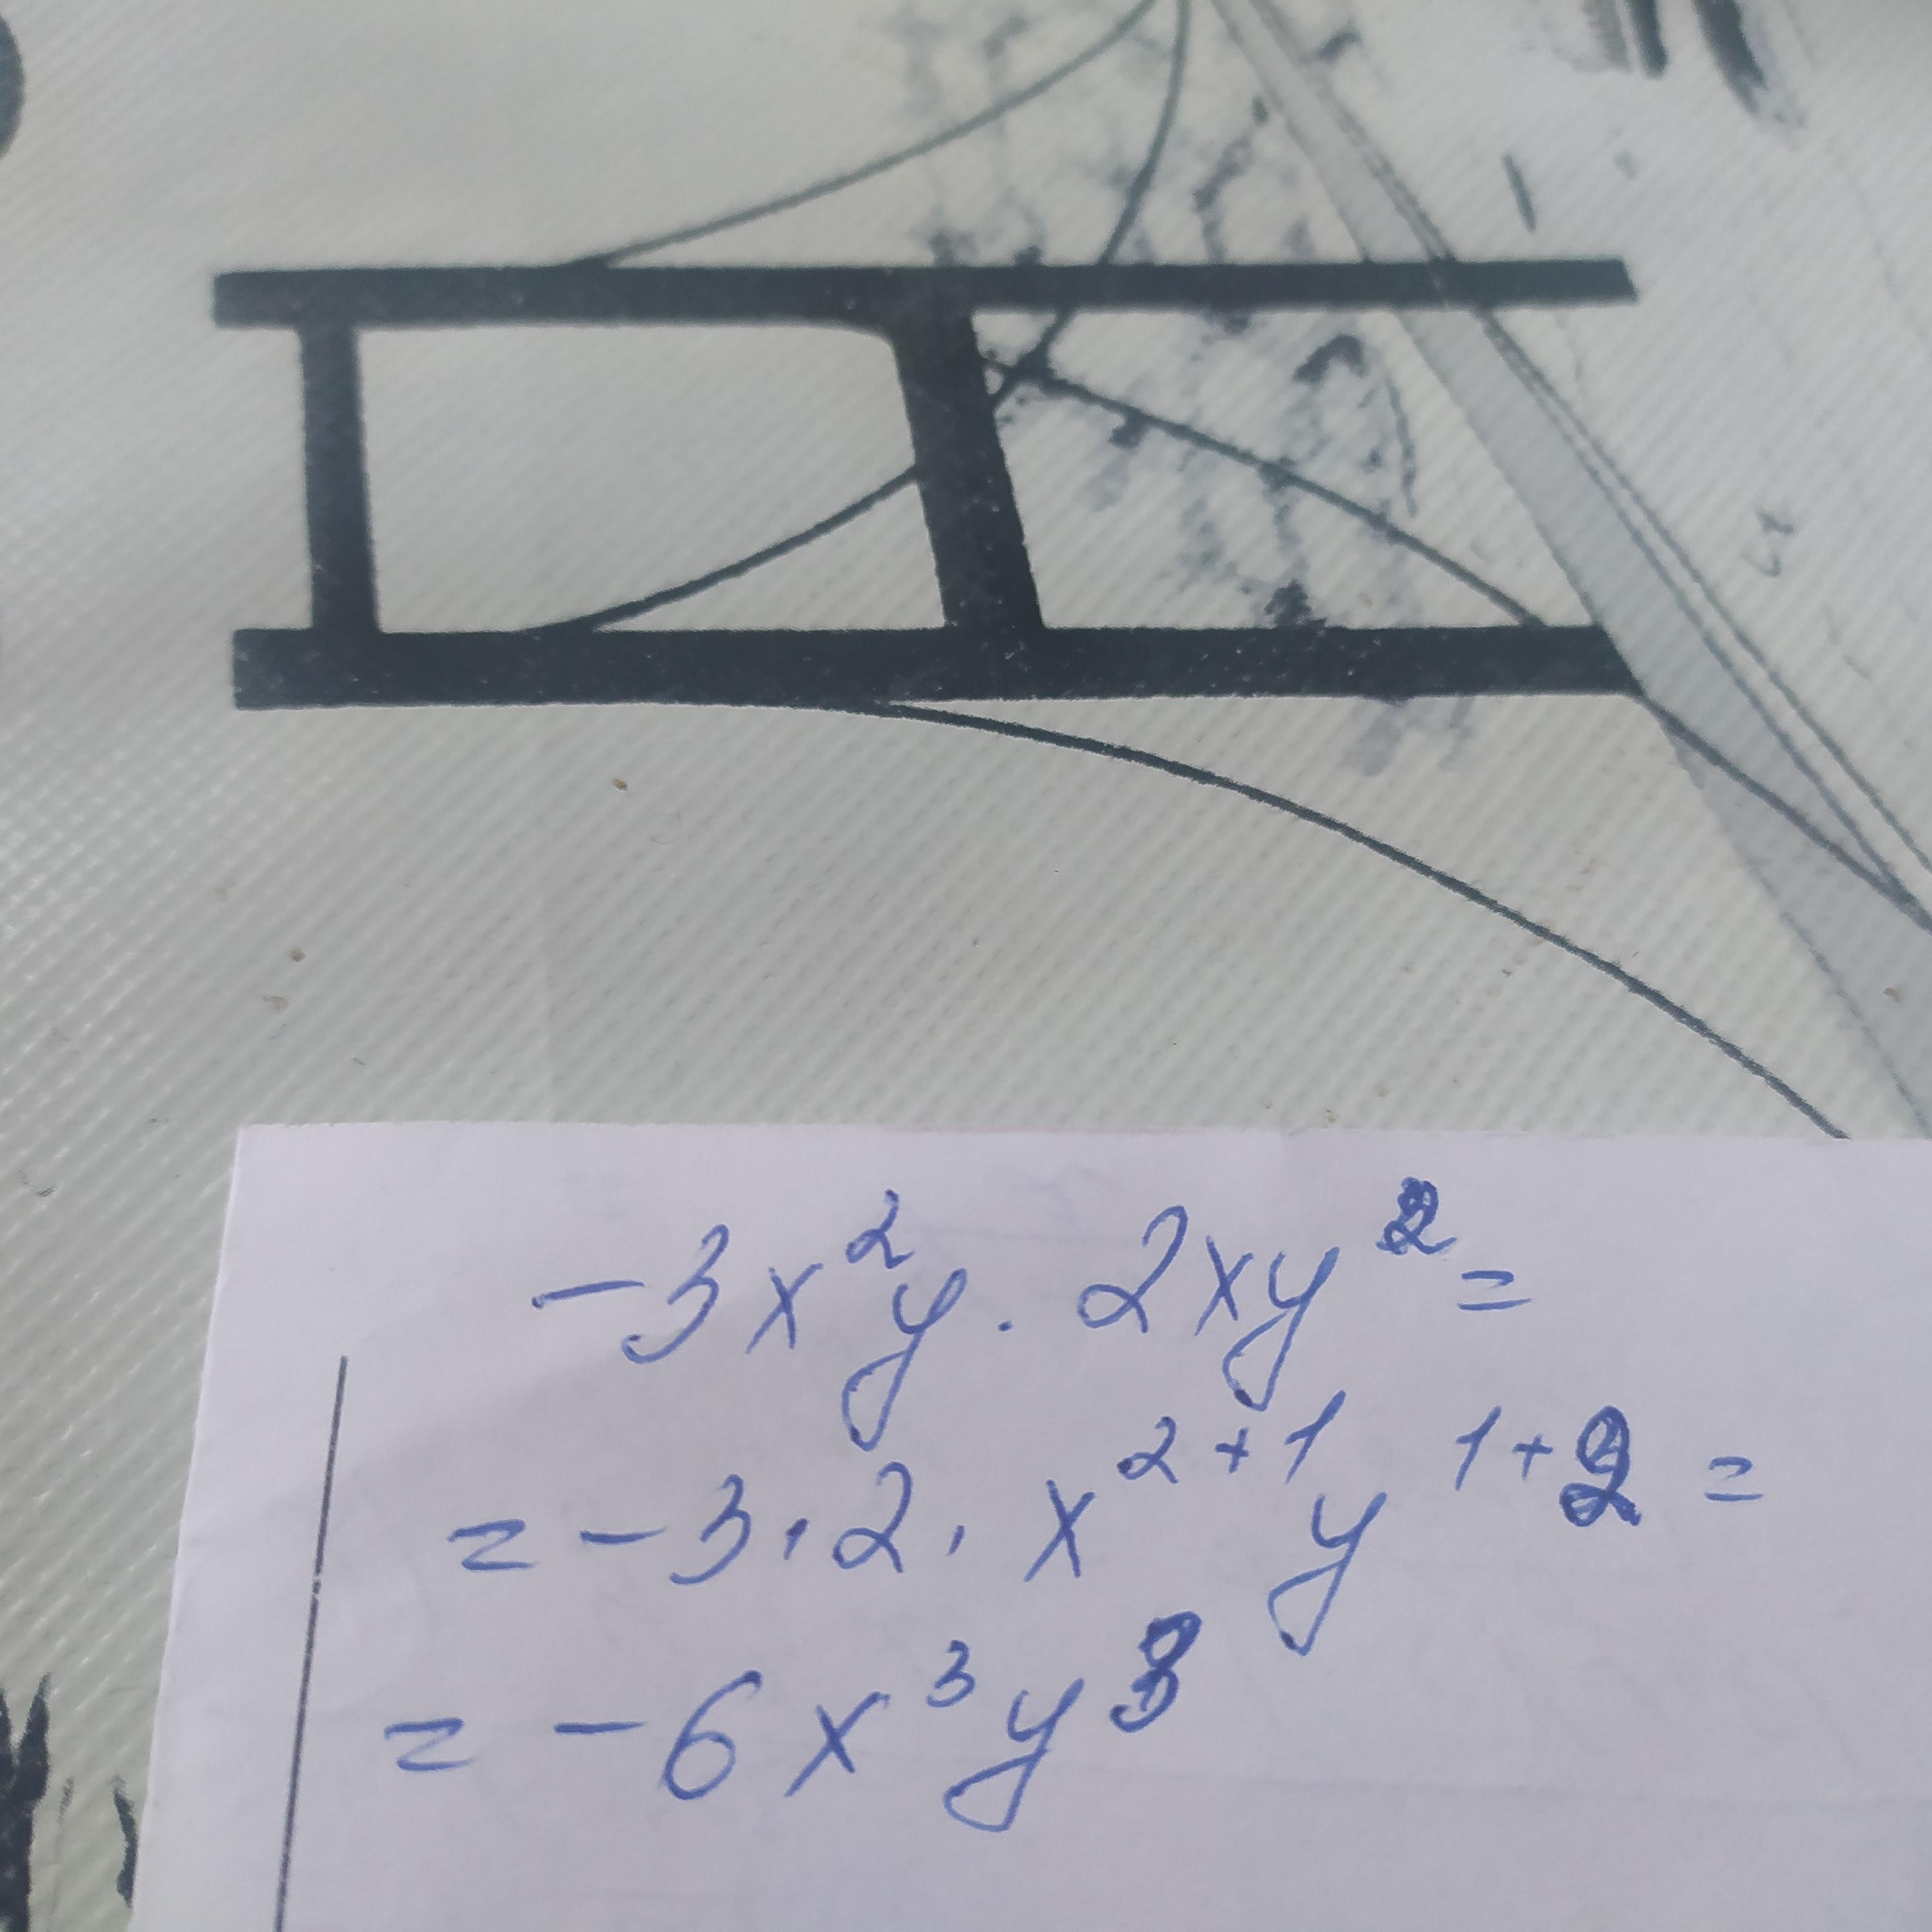 -3x²y · 2xy² =
= -3 · 2 · x²⁺¹y¹⁺² =
= -6x³y³